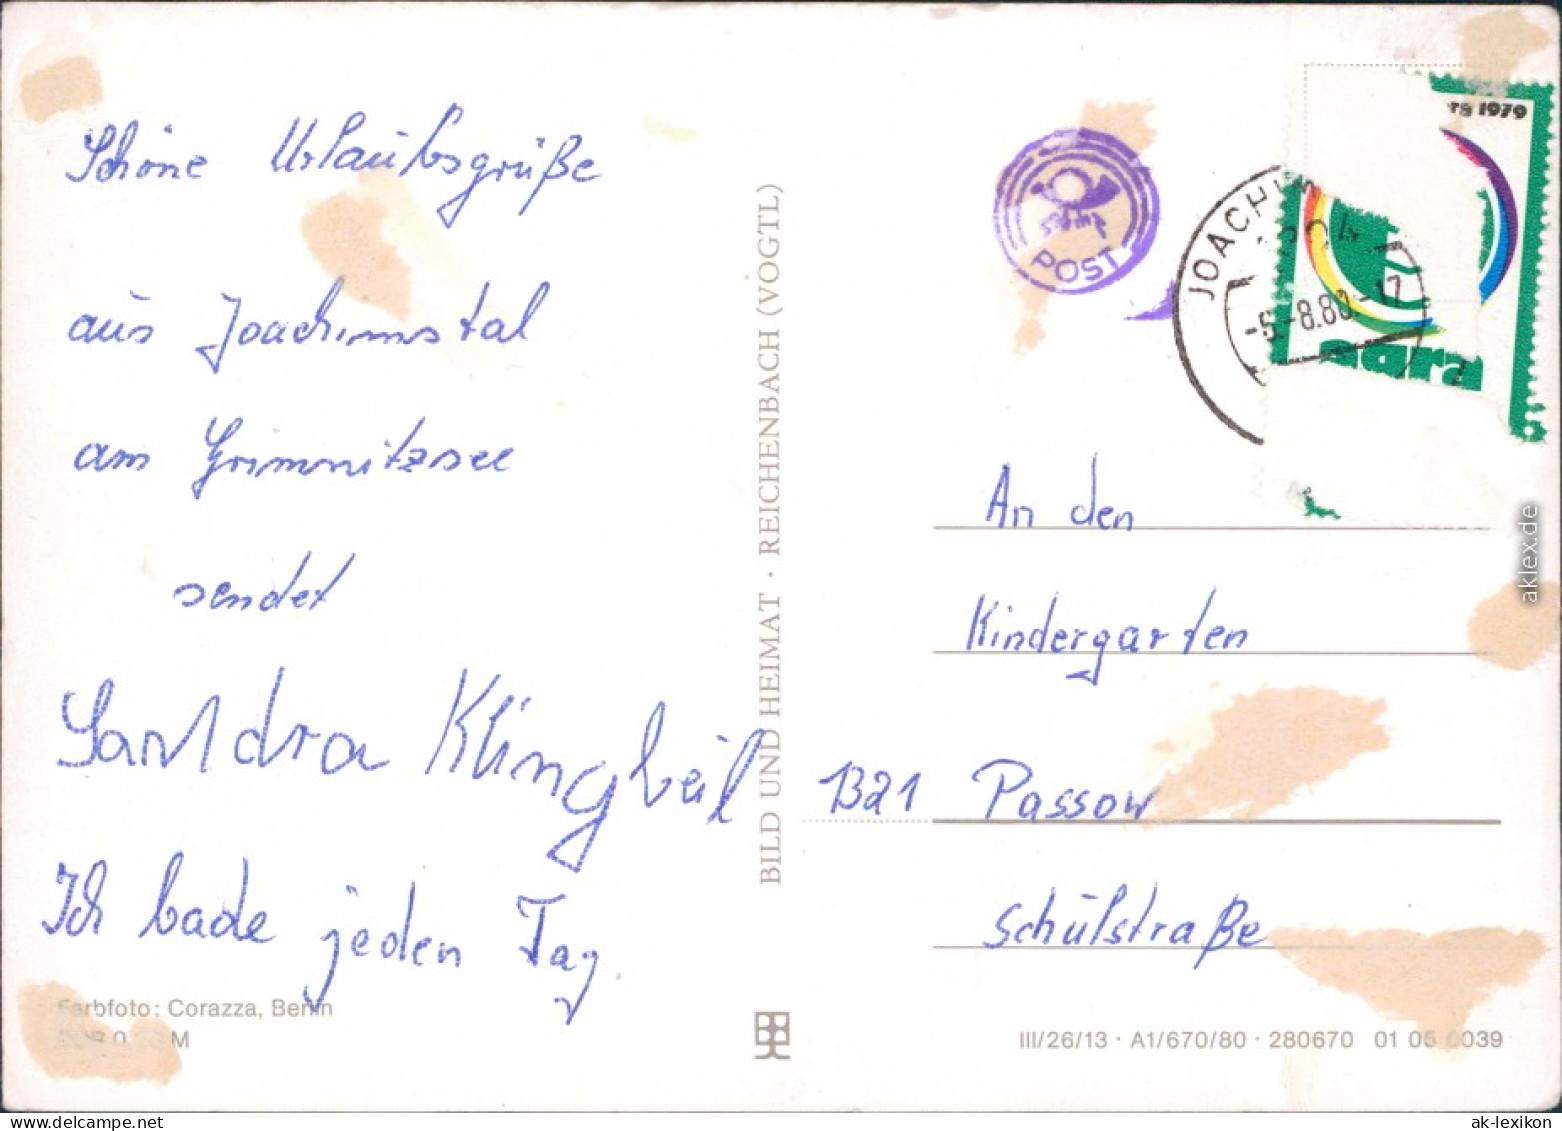 Schöne Urlaubsgrüße
aus Joachimstal
am Grimnitzsee
sendet
Sandra Klingbeil
Ich bade jeden Tag.
Farbfoto: Corazza, Berlin
M
BILD UND HEIMAT · REICHENBACH (VOGTL)
POST
JOACHIM
-8.80.-17
1979
agra
An den
Kindergarten
1321 Passow
Schulstraße
III/26/13 · A1/670/80 · 280670 01 05 0039
aklex.de
ak-lexikon